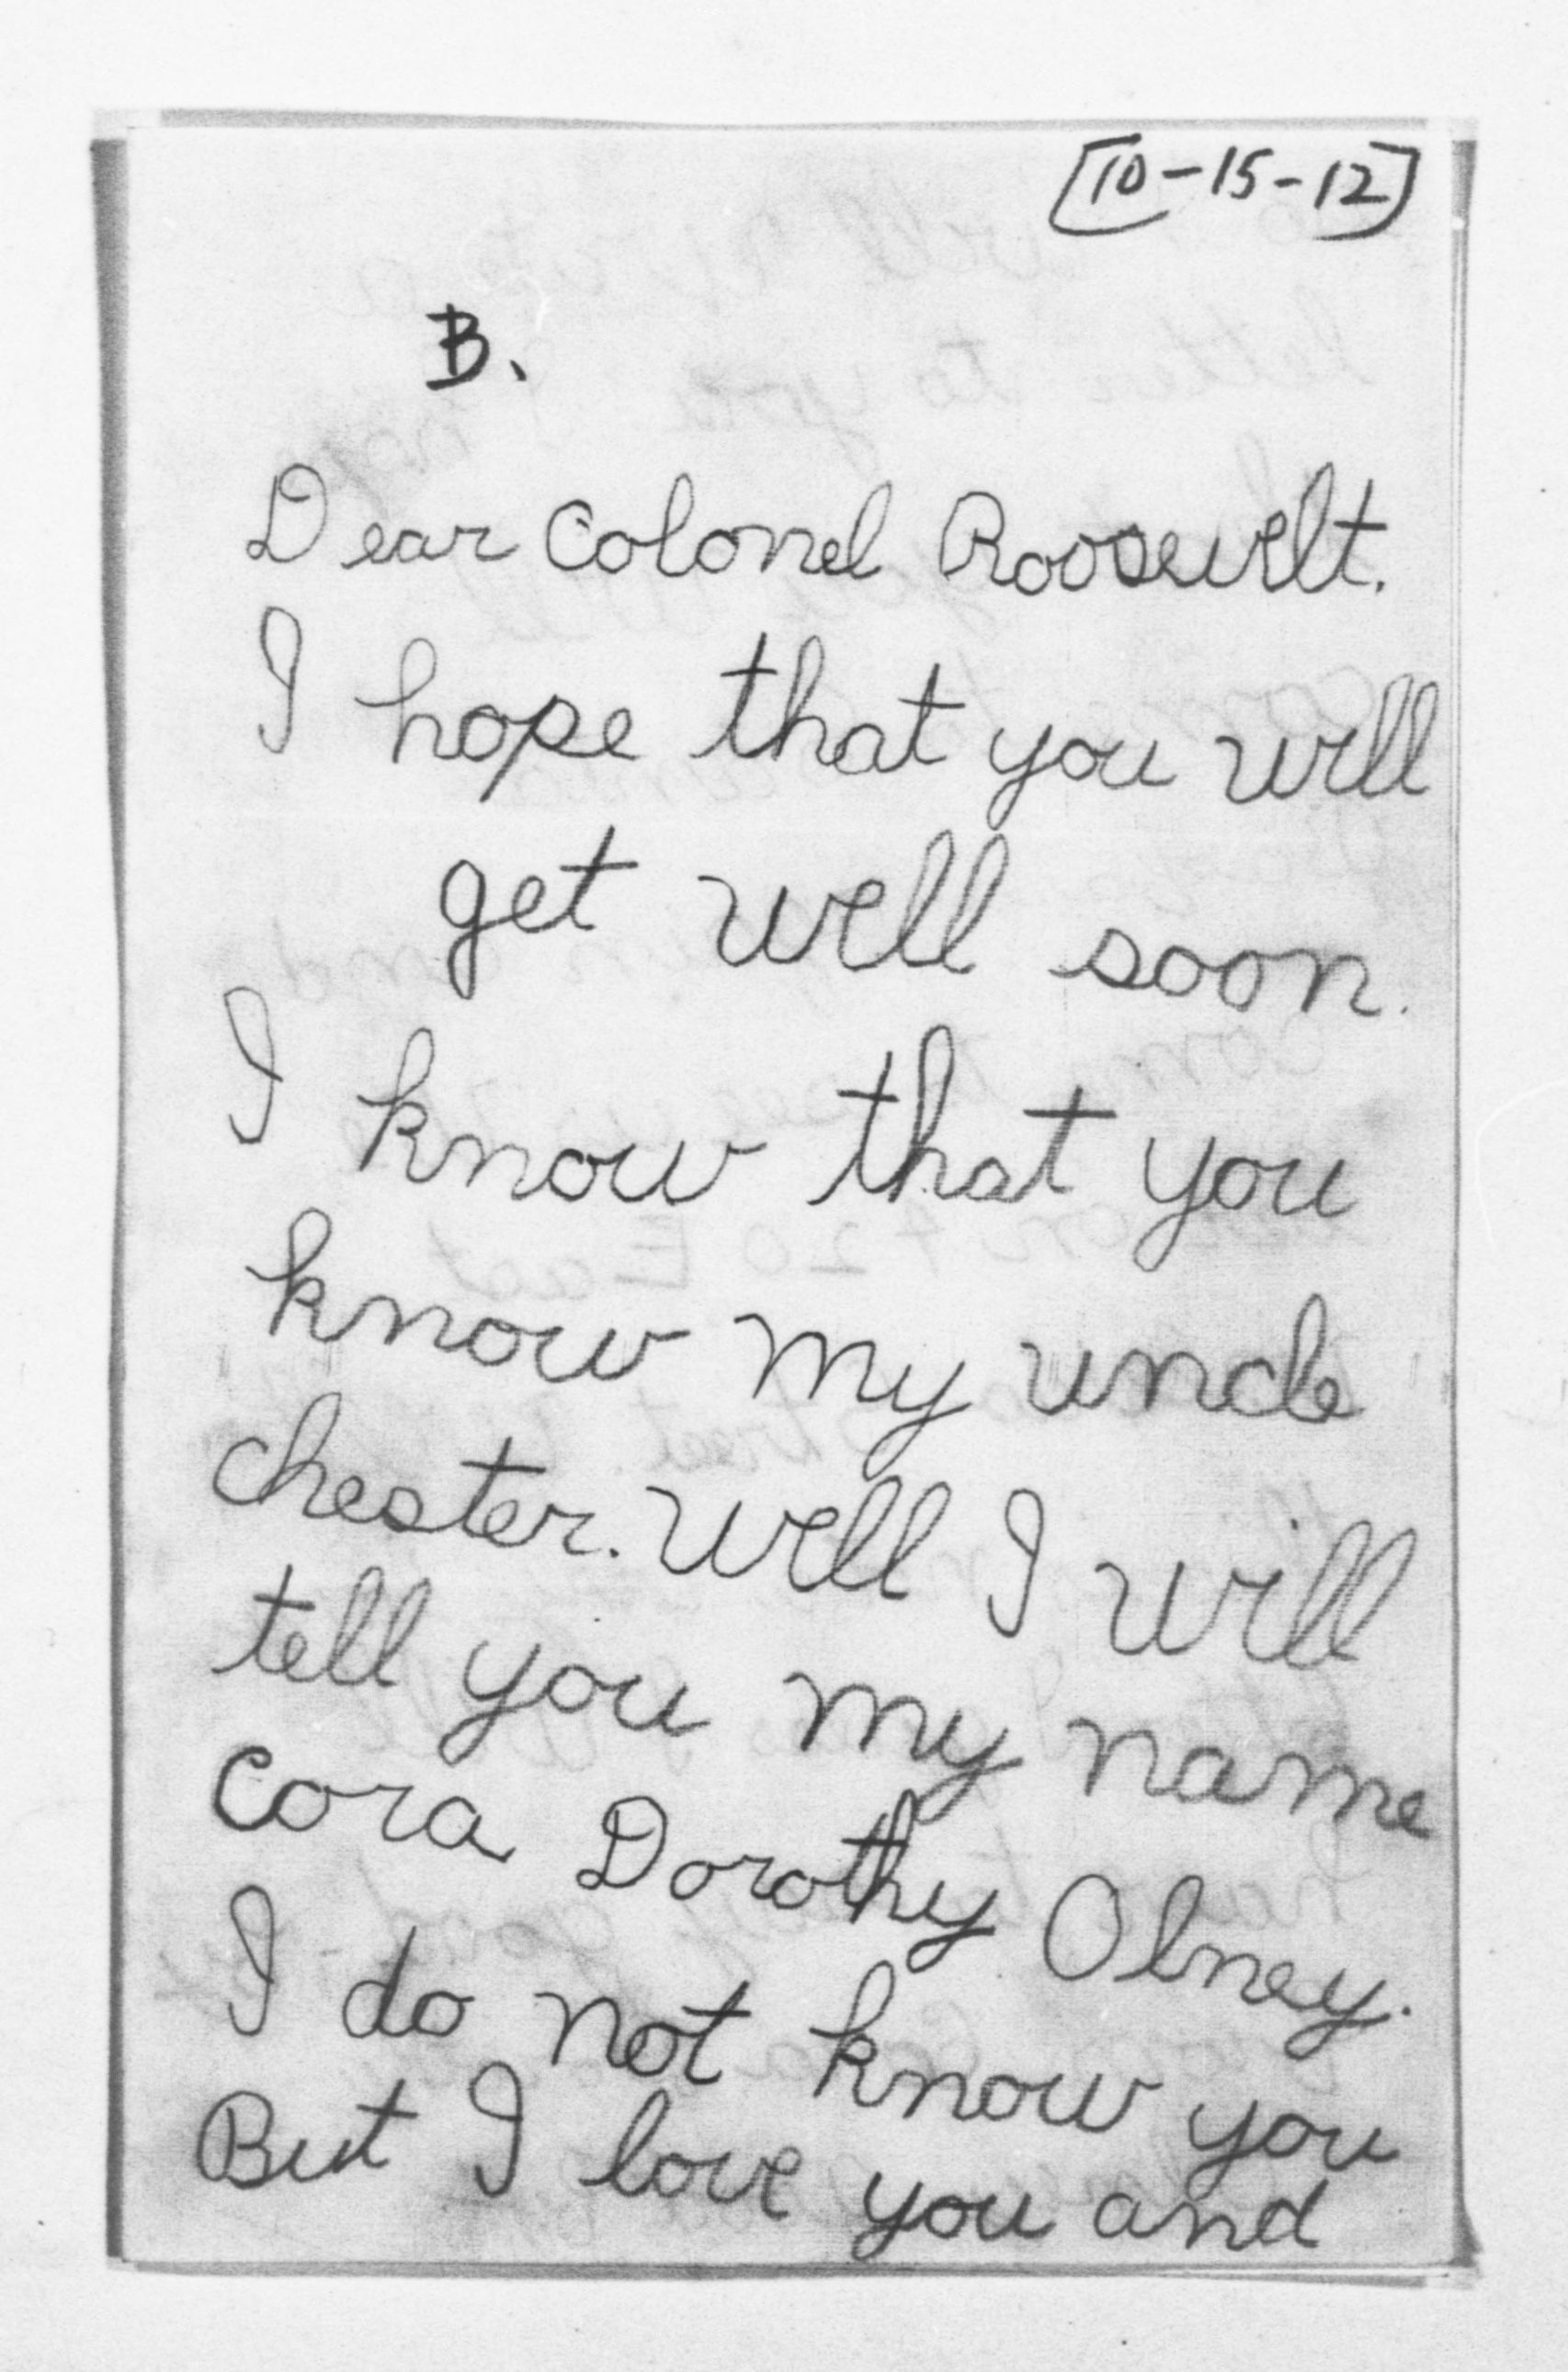 [10-15-12]
B.
Dear Colonel Roosevelt.
I hope that you will
get well soon.
I know that you
know my uncle
chester. Well I will
tell you my name
Cora Dorothy Olney.
I do not know you
But I love you and